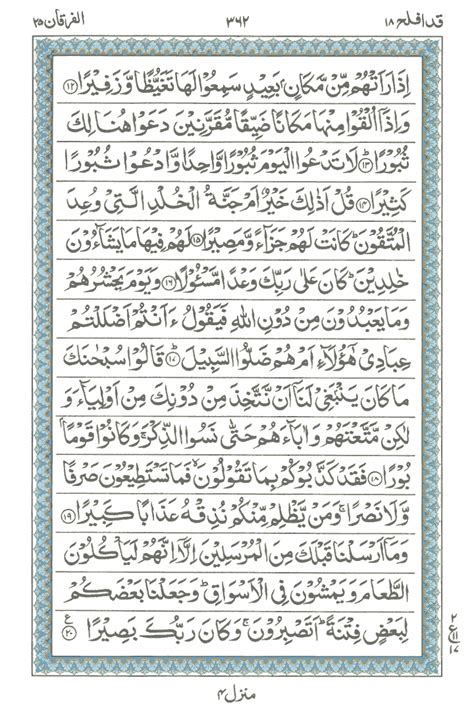 قد افلح ۱۸ ۳۶۲ الفرقان ۲۵
اِذَا رَاَتْهُمْ مِّنْ مَّكَانٍۭ بَعِيْدٍ سَمِعُوْا لَهَا تَغَيُّظًا وَّ زَفِيْرًا ۝۱۲
وَ اِذَاۤ اُلْقُوْا مِنْهَا مَكَانًا ضَيِّقًا مُّقَرَّنِيْنَ دَعَوْا هُنَالِكَ
ثُبُوْرًا ۝۱۳ لَا تَدْعُوا الْيَوْمَ ثُبُوْرًا وَّاحِدًا وَّ ادْعُوْا ثُبُوْرًا
كَثِيْرًا ۝۱۴ قُلْ اَذٰلِكَ خَيْرٌ اَمْ جَنَّةُ الْخُلْدِ الَّتِيْ وُعِدَ
الْمُتَّقُوْنَ ؕ كَانَتْ لَهُمْ جَزَآءً وَّ مَصِيْرًا ۝۱۵ لَهُمْ فِيْهَا مَا يَشَآءُوْنَ
خٰلِدِيْنَ ؕ كَانَ عَلٰى رَبِّكَ وَعْدًا مَّسْـُٔوْلًا ۝۱۶ وَ يَوْمَ يَحْشُرُهُمْ
وَ مَا يَعْبُدُوْنَ مِنْ دُوْنِ اللّٰهِ فَيَقُوْلُ ءَاَنْتُمْ اَضْلَلْتُمْ
عِبَادِيْ هٰۤؤُلَآءِ اَمْ هُمْ ضَلُّوا السَّبِيْلَ ۝۱۷ قَالُوْا سُبْحٰنَكَ
مَا كَانَ يَنْۢبَغِيْ لَنَاۤ اَنْ نَّتَّخِذَ مِنْ دُوْنِكَ مِنْ اَوْلِيَآءَ وَ
لٰكِنْ مَّتَّعْتَهُمْ وَ اٰبَآءَهُمْ حَتّٰى نَسُوا الذِّكْرَ ۚ وَ كَانُوْا قَوْمًۢا
بُوْرًا ۝۱۸ فَقَدْ كَذَّبُوْكُمْ بِمَا تَقُوْلُوْنَ ۙ فَمَا تَسْتَطِيْعُوْنَ صَرْفًا
وَّ لَا نَصْرًا ۚ وَ مَنْ يَّظْلِمْ مِّنْكُمْ نُذِقْهُ عَذَابًا كَبِيْرًا ۝۱۹
وَ مَاۤ اَرْسَلْنَا قَبْلَكَ مِنَ الْمُرْسَلِيْنَ اِلَّاۤ اِنَّهُمْ لَيَاْكُلُوْنَ
الطَّعَامَ وَ يَمْشُوْنَ فِي الْاَسْوَاقِ ؕ وَ جَعَلْنَا بَعْضَكُمْ
لِبَعْضٍ فِتْنَةً ؕ اَتَصْبِرُوْنَ ۚ وَ كَانَ رَبُّكَ بَصِيْرًا ۝۲۰ ع
۲
ع ۱۱
۱۷
منزل ۴